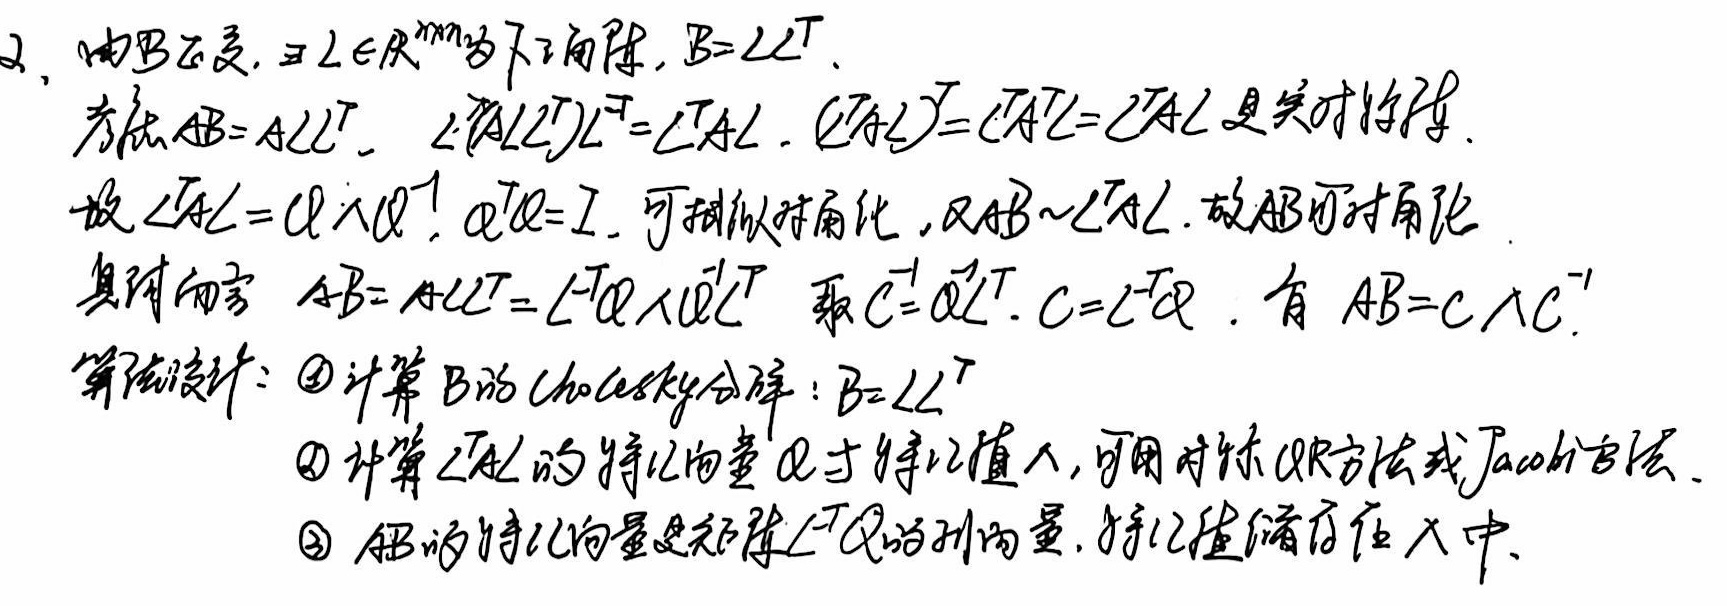 2、由B正定,∃L∈R^{n×n}为下三角阵,B=LL^T.
考虑AB=ALL^T. L^T(ALL^T)L^{-T}=L^TAL. (L^TAL)^T=L^TA^TL=L^TAL是实对称阵.
故L^TAL=QΛQ^{-1}, Q^TQ=I. 可相似对角化,又AB~L^TAL.故AB可对角化.
具体而言 AB=ALL^T=L^{-T}QΛQ^{-1}L^T 取C^{-1}=Q^{-1}L^T. C=L^{-T}Q. 有 AB=CΛC^{-1}.
算法设计:①计算B的Cholesky分解:B=LL^T
②计算L^TAL的特征向量Q与特征值Λ,可用对称QR方法或Jacobi方法.
③AB的特征向量是矩阵L^{-T}Q的列向量,特征值储存在Λ中.